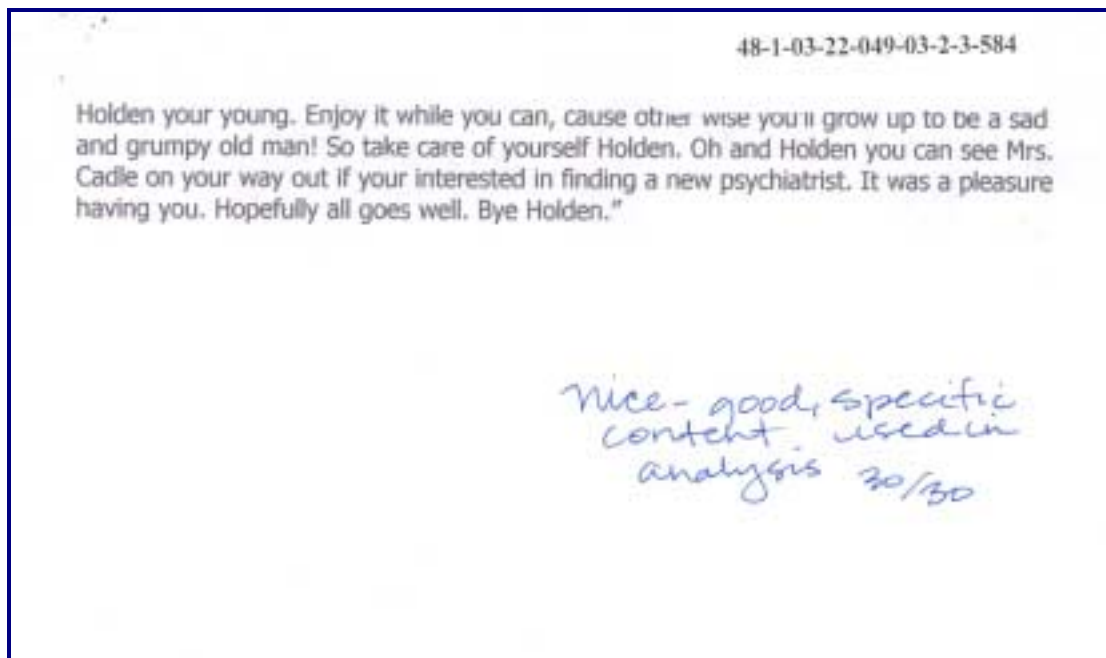 48-1-03-22-049-03-2-3-584
Holden your young. Enjoy it while you can, cause other wise you'll grow up to be a sad
and grumpy old man! So take care of yourself Holden. Oh and Holden you can see Mrs.
Cadle on your way out if your interested in finding a new psychiatrist. It was a pleasure
having you. Hopefully all goes well. Bye Holden."
nice- good, specific
content used in
analysis 30/30